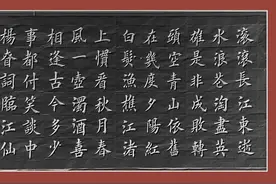 滾滾長江東逝
水浪花淘盡英
雄是非成敗轉
頭空青山依舊
在幾度夕陽紅
白髮漁樵江渚
上慣看秋月春
風一壺濁酒喜
相逢古今多少
事都付笑談中
楊眘詞臨江仙